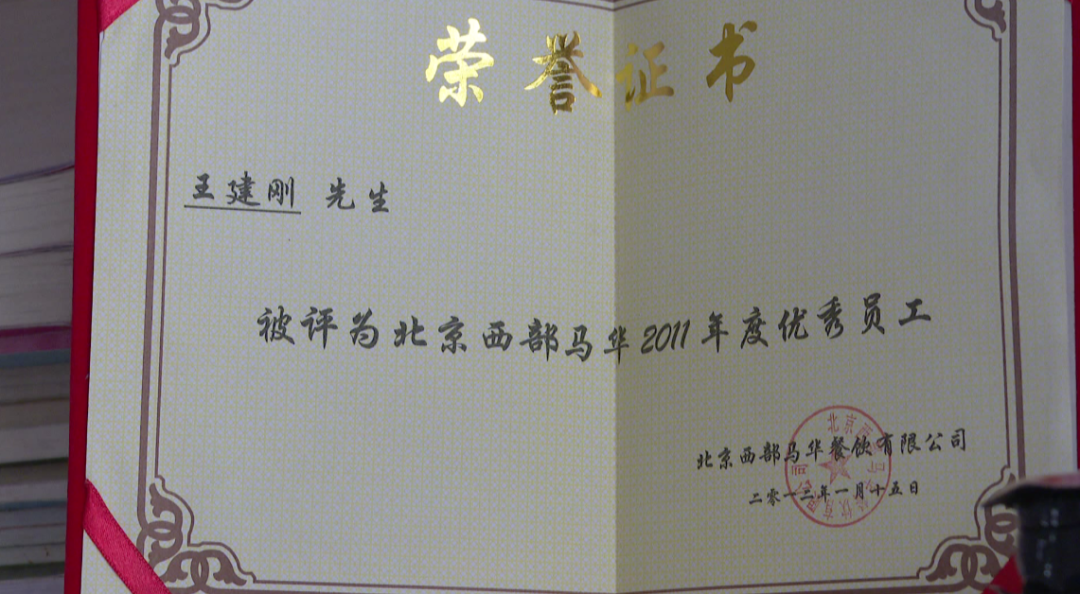 荣誉证书
王建刚 先生
被评为北京西部马华2011年度优秀员工
北京西部马华餐饮有限公司
二零一二年一月十五日